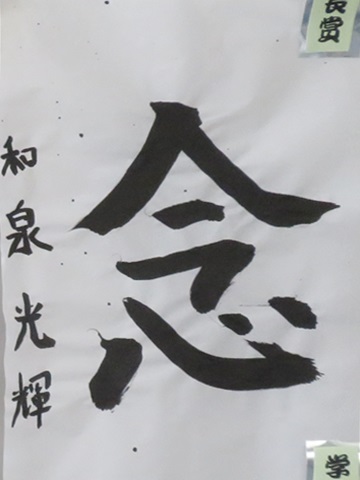 念
和泉光輝
長賞
学